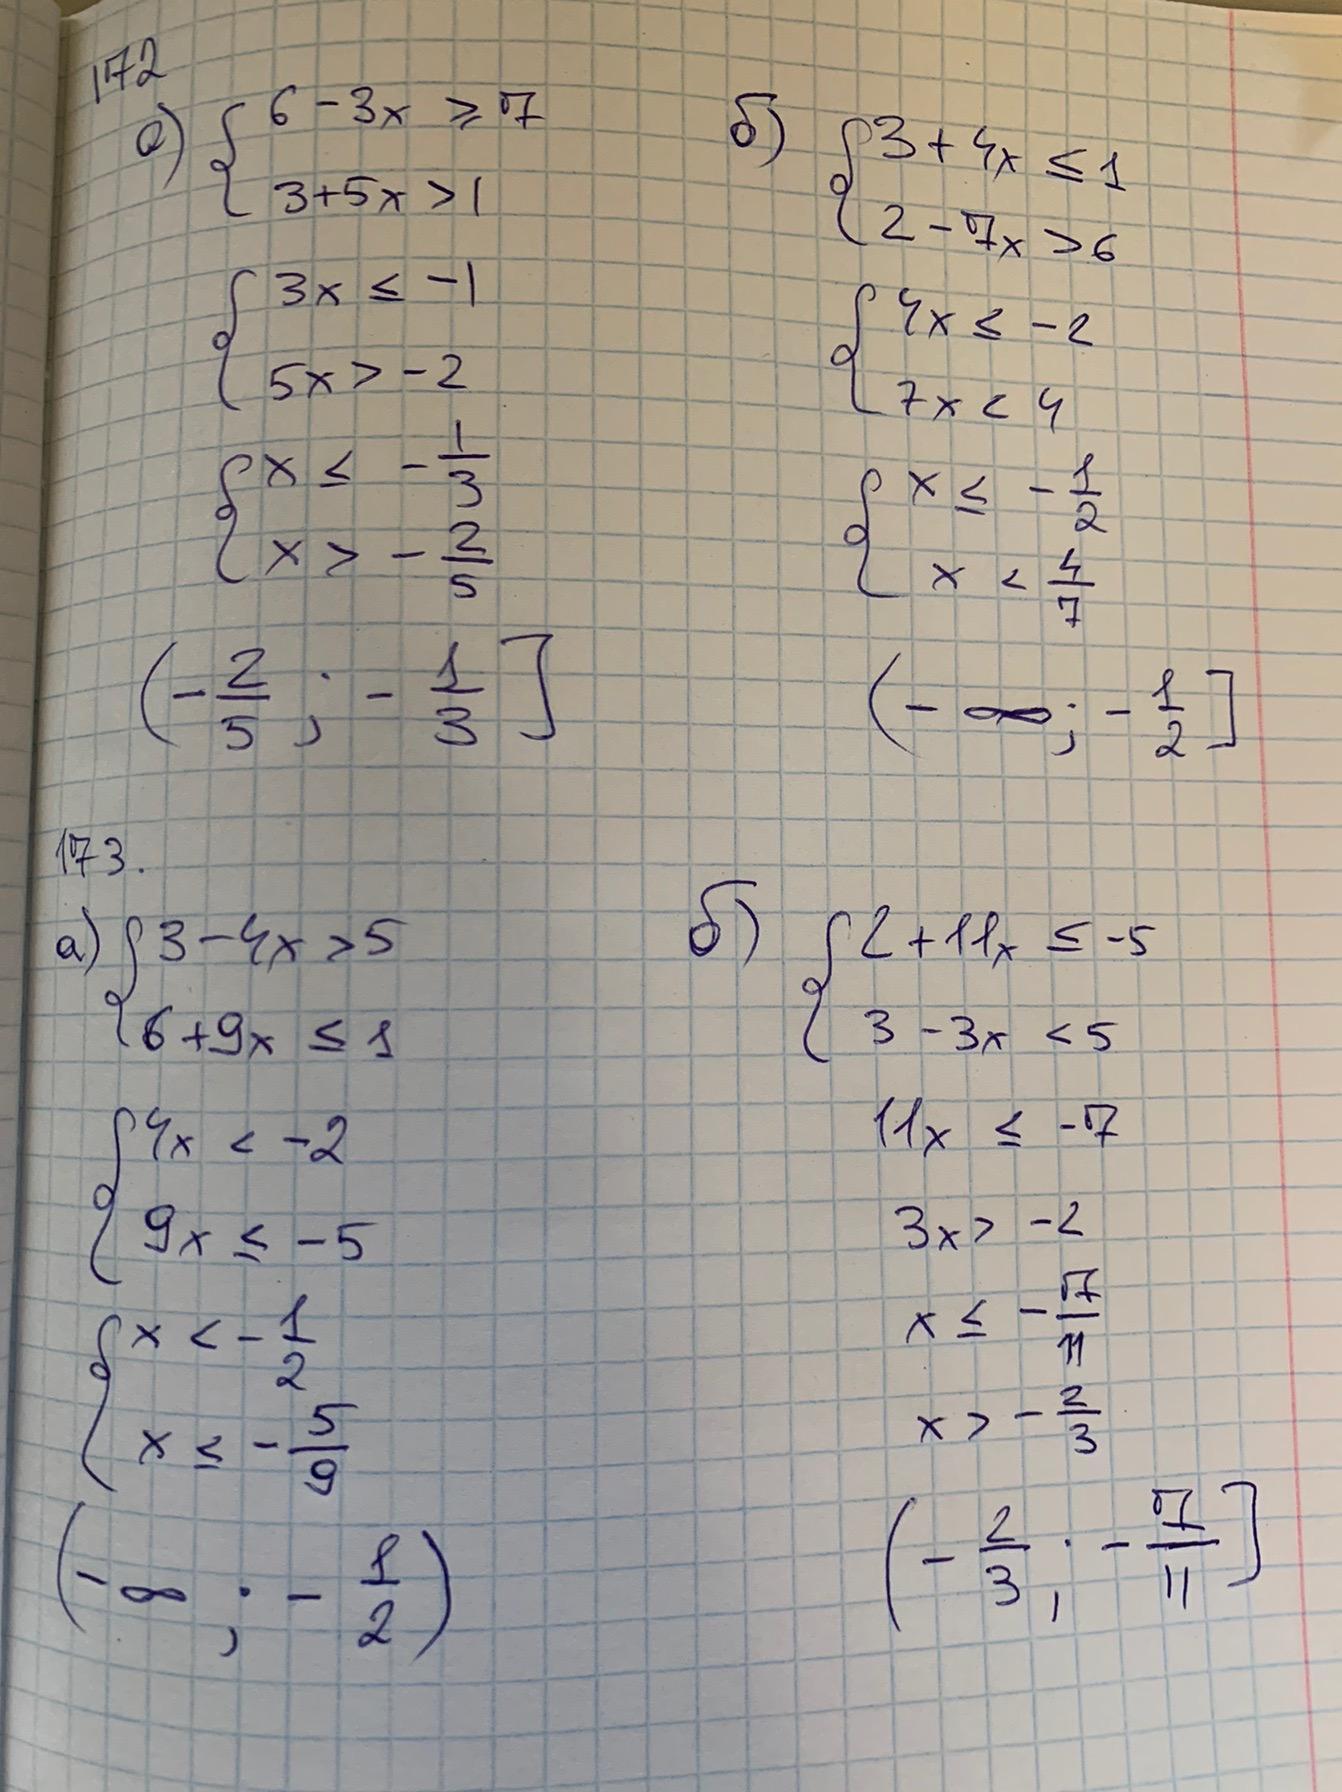 172
а) { 6 - 3x ≥ 7
3 + 5x > 1
{ 3x ≤ -1
5x > -2
{ x ≤ -1/3
x > -2/5
(-2/5 ; -1/3]
б) { 3 + 4x ≤ 1
2 - 7x > 6
{ 4x ≤ -2
7x < 4
{ x ≤ -1/2
x < 4/7
(-∞; -1/2]
173.
а) { 3 - 4x > 5
6 + 9x ≤ 1
{ 4x < -2
9x ≤ -5
{ x < -1/2
x ≤ -5/9
(-∞ ; -1/2)
б) { 2 + 11x ≤ -5
3 - 3x < 5
11x ≤ -7
3x > -2
x ≤ -7/11
x > -2/3
(-2/3 ; -7/11]